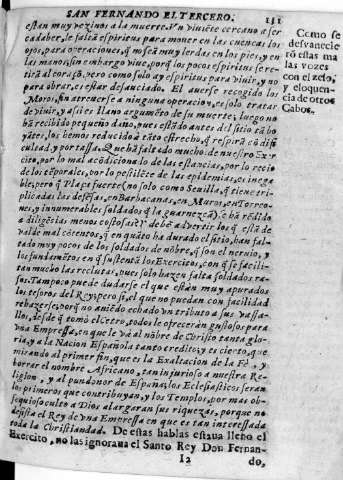 SAN FERNANDO EL TERCERO. 131
estàn muy vezinos a la muerte. Un viuiẽte cercano a ser
cadauer, le faltã espiritus para mouer en las cuencas los
ojos, para operaciones, q̃ no seã muy lerdas en los pies, y en
las manos, sin embargo viue, porq̃ los pocos espiritus se re-
tirã al coraçõ, pero como solo ay espiritus para viuir, y no
para obrar, es estar desauciado. El auerse recogido los
Moros, sin atreuerse a ninguna operacion, es solo tratar
de viuir, y assi es llano argumẽto de su muerte; luego no
hã recibido pequeño daño, pues estãdo antes del sitio tã bo
yãtes, los hemos reducido à tãto estrecho, q̃ respirã cõ difi
cultad, y por tassa. Que hà faltado mucho de nuestro Exer
cito, por lo mal acõdicionado de las estancias, por lo recio
de los tẽporales, por lo pestilẽte de las epidemias, es inega
ble; pero q̃ Plaça fuerte (no solo como Seuilla, q̃ tiene tri-
plicadas las defẽsas, en Barbacanas, en Muros, en Torreo-
nes, y innumerables soldados q̃ la guarnezcã) se hà rẽdido
a diligẽcias menos costosas? debẽ aduertir los q̃ estã de
valde mal cõtentos, q̃ en quãto ha durado el sitio, han fal-
tado muy pocos de los soldados de nõbre, q̃ son el neruio, y
los fundamẽtos en q̃ sustentã los Exercitos, con q̃ se facili-
tan mucho las reclutas, pues solo hazeu falta soldados ra-
sos. Tampoco puede dudarse el que estèn muy apurados
los tesoros del Rey, pero si, el que no puedan con facilidad
rehazerse, porq̃ no aniẽdo echado un tributo a sus vassa-
llos, desde q̃ tomò el cetro, todos le ofrecerãn gustosos para
vna Empressa, en que le và al nõbre de Christo tanta glo-
ria, y a la Nacion Española tanto credito; y es cierto, que
mirando al primer fin, que es la Exaltacion de la Fè, y
borrar el nombre Africano, tan injurioso a nuestra Re
ligion, y al pundonor de España, los Eclesiasticos seràn
los primeros que contribuyan, y los Templos, por mas ob-
sequiosos culto a Dios alargaran sus riquezas, porque no
desista el Rey de vna Empressa en que es tan interessada
toda la Christiandad. De estas hablas estaua lleno el
Exercito, no las ignoraua el Santo Rey Don Fernan-
I2 do,
Como se
desvanecie
rõ estas ma
las vozes
con el zelo,
y eloquen
cia de otros
Cabos.